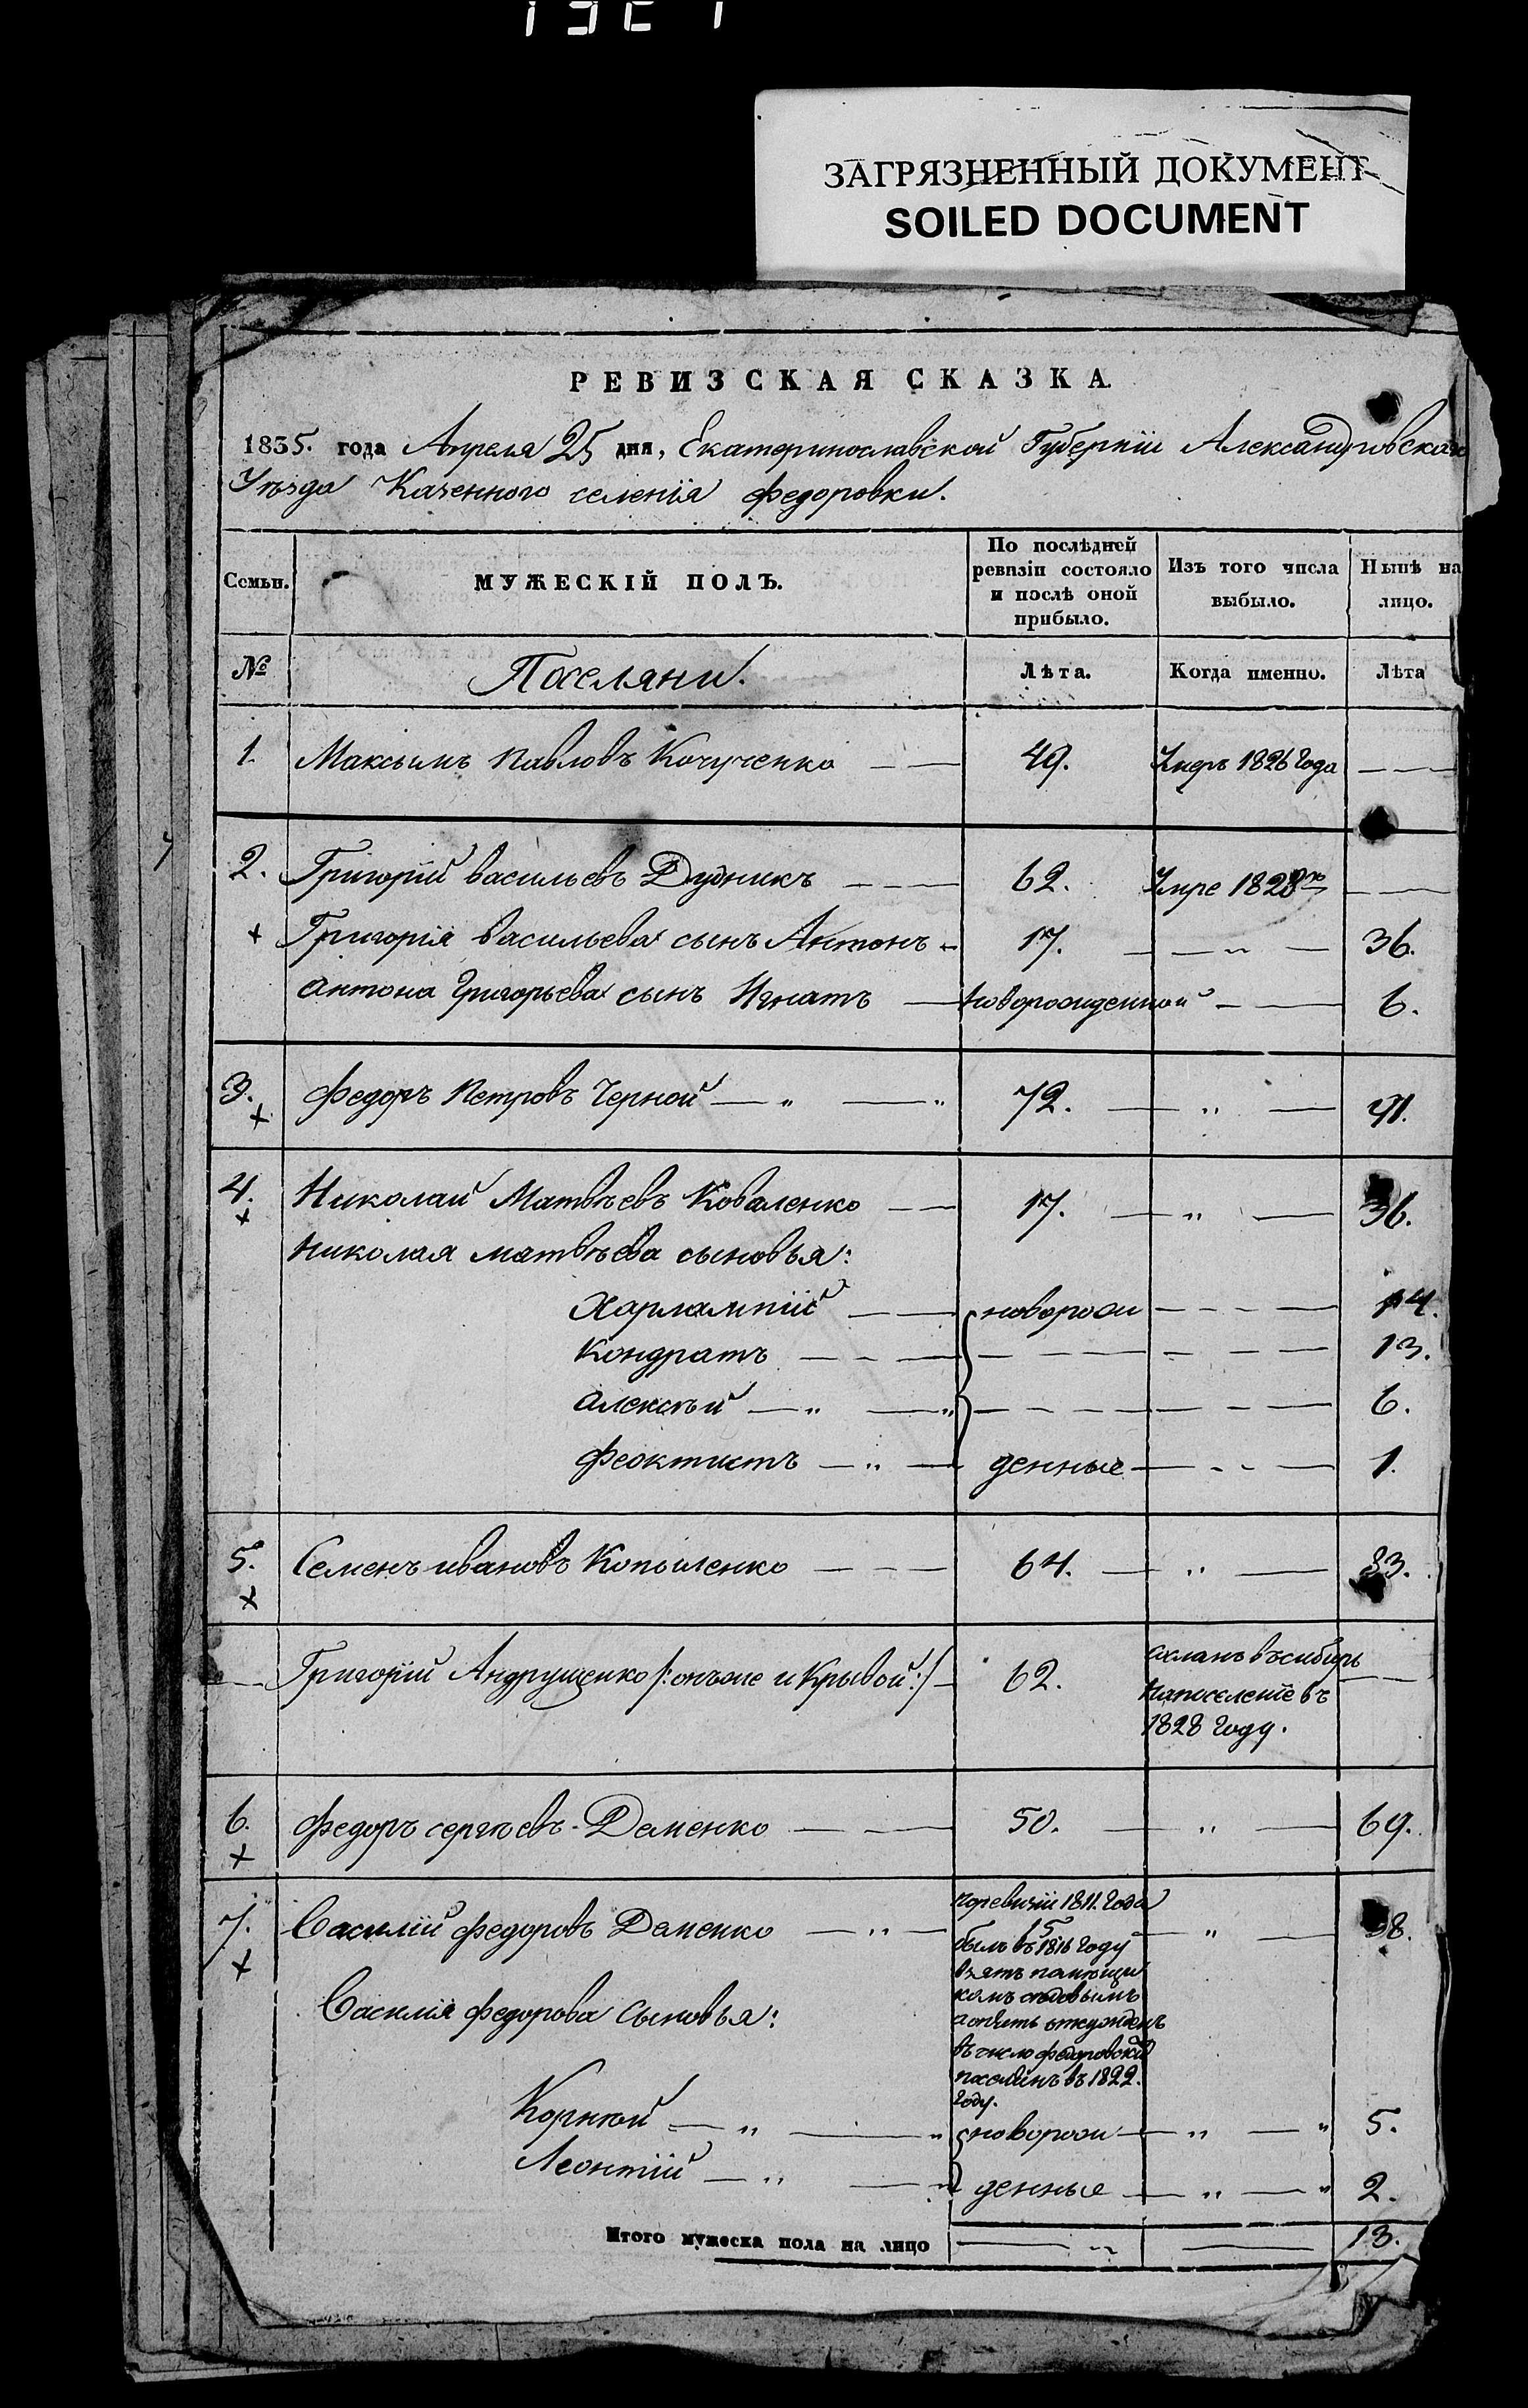 ЗАГРЯЗНЕННЫЙ ДОКУМЕНТ
SOILED DOCUMENT
РЕВИЗСКАЯ СКАЗКА.
1835. года Апреля 25 дня, Екатеринославской Губернїи Александровскаго
Уѣзда Казенного селенїя Федоровки.
Семьи. МУЖЕСКІЙ ПОЛЪ. По послѣдней ревизіи состояло и послѣ оной прибыло. Изъ того числа выбыло. Нынѣ на лицо.
№ Поселяни. Лѣта. Когда именно. Лѣта
1. Максымъ Павловъ 49. Умеръ 1826 Года
2. Григорїй васильевъ Дудникъ 62. Умре 1828
+ Григорїя васильева сынъ Антонъ 17. 36.
Антона Григорьева сынъ Игнатъ Новорожденной 6.
3. + Федоръ Петровъ Черной 72. 91.
4. + Николай Матвѣевъ Коваленко 17. 36.
Николая Матвѣева сыновья:
Харлампїй новорож 14.
Кондратъ 13.
Алексѣй 6.
Феоктистъ денные 1.
5. + Семенъ ивановъ Копыленко 64. 83.
Григорїй Андрущенко /:онъже и Крывой:/ 62. сасланъ въ сибирь
на поселенїе въ
1828 Году.
6. + Федоръ сергѣевъ Деменко 50. 69.
7. + Василїй Федоровъ Деменко по ревизїи 1811. Года 38.
15
былъ въ 1816 Году
взятъ помѣщи
комъ
а опять отсужденъ
въ число федоровскихъ
поселянъ въ 1822.
Году.
Василїя Федорова Сыновья:
Корнѣй новорож 5.
Леонтїй денные 2.
Итого мужеска пола на лицо 13.